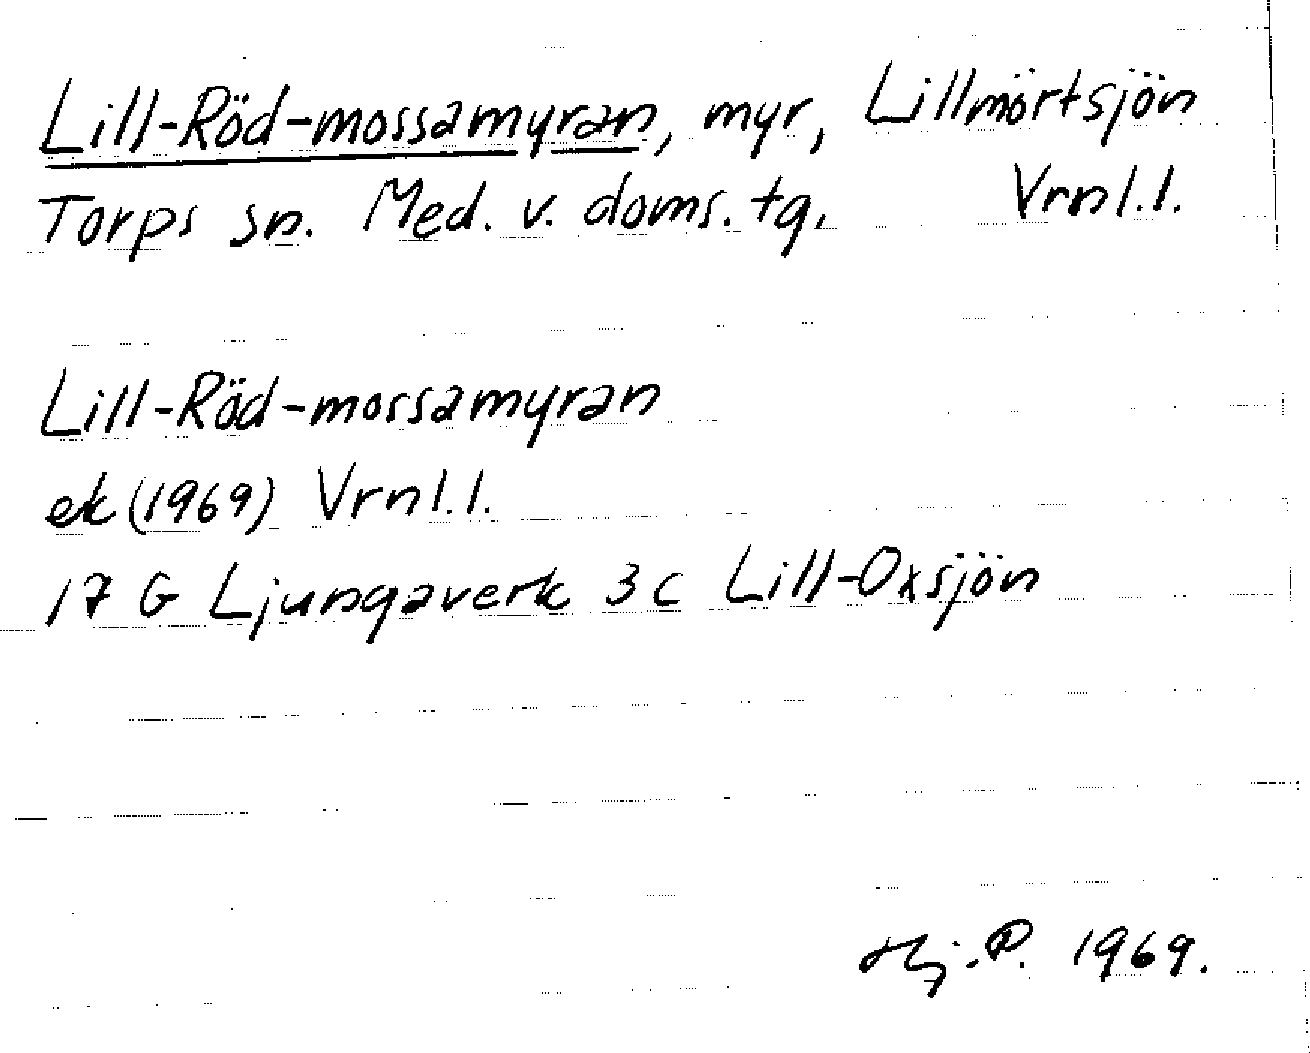 Lill-Röd-mossamyran, myr, Lillmörtsjön
Torps sn. Med. v. doms. tg. Vrnl.l.
Lill-Röd-mossamyran
ek (1969) Vrnl.l.
17 G Ljungaverk 3c Lill-Oxsjön
Hj. P. 1969.